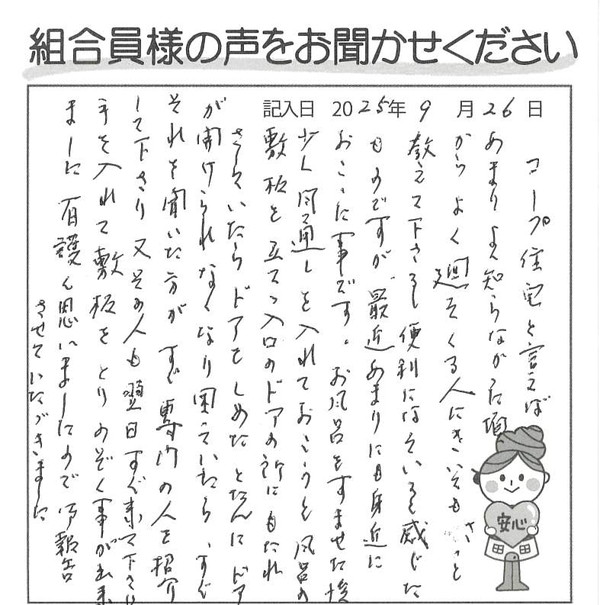 組合員様の声をお聞かせください
記入日 2025年 9月26日
コープ住宅と言えば
あまりよく知らなかった頃
からよく廻ってくる人にきいてもさっと
教えて下さるし便利になっていると感じた
ものですが、最近あまりにも身近に
おこった事です。お風呂をすませた後
少し風通しを入れておこうと風呂の
敷板を立てて入口のドアの所にもたれ
さしていたらドアをしめたとたんにドア
が開けられなくなり困っていたら、すぐ
それを聞いた方がすぐ専門の人を紹介
して下さり又その人も翌日すぐ来て下さり
手を入れて敷板をとりのぞく事が出来
ました 有難く思いましたので御報告
させていただきました
安心